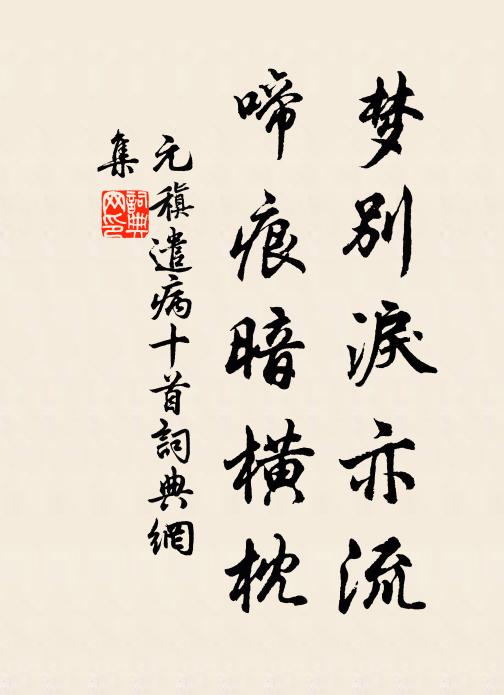 梦别淚亦流
啼痕暗橫枕
元稹遣病十首詞典網
集
詞典网印